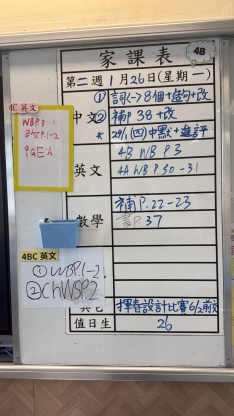 家課表
4B
第二週 1月26日(星期一)
中文
① 詞(一)8個+造句+改
② 補P.38+改
* 29/1(四)中默+進評
4C 英文
英文
4B WB P.3
4A WB P.30-31
數學
補P.22-23
P.37
4BC 英文
① WBP.1-2
② ChWSP.2
其它
揮春設計比賽6/2前交
值日生
26